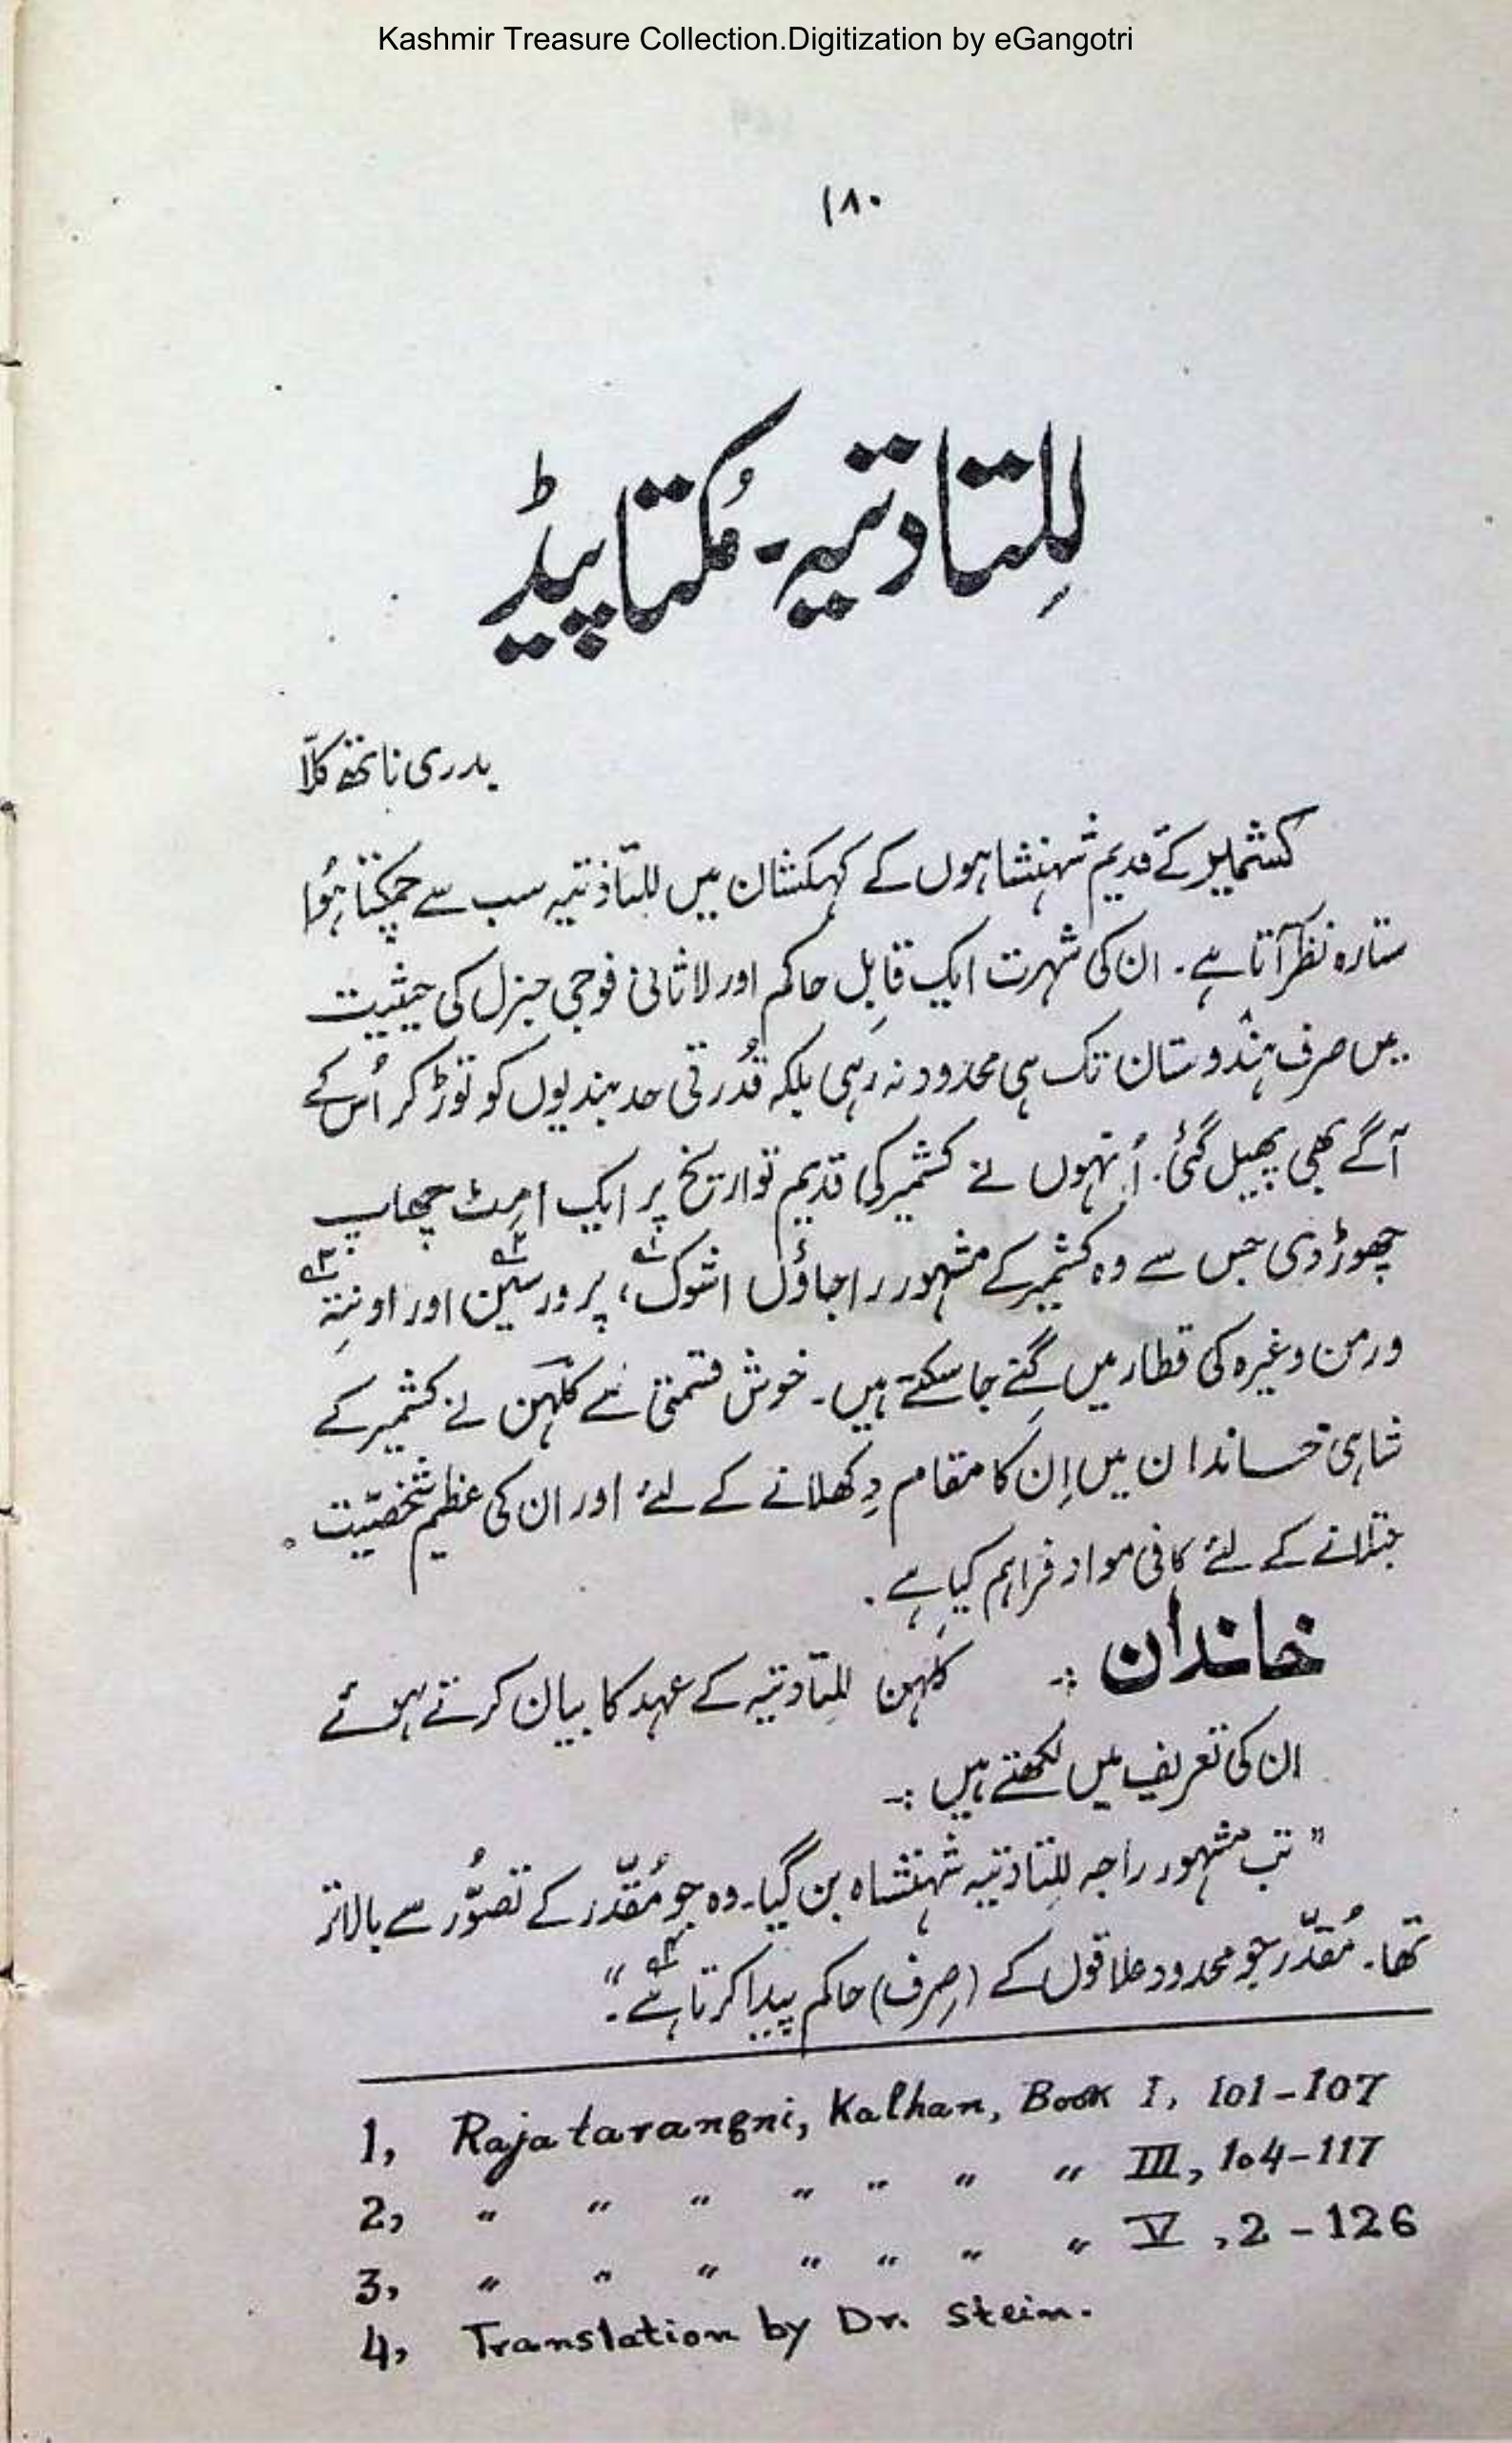 Kashmir Treasure Collection.Digitization by eGangotri
۱۸۰
للِتادتیہ - مُکتاپیڈ
بدری ناتھ کلّا
کشمیر کے قدیم شہنشاہوں کے کہکشان میں للتادتیہ سب سے چمکتا ہُوا
ستارہ نظر آتا ہے۔ ان کی شہرت ایک قابِل حاکم اور لاثانی فوجی جنرل کی حیثیت
میں صرف ہندوستان تک ہی محدود نہ رہی بلکہ قُدرتی حد بندیوں کو توڑ کر اُس کے
آگے بھی پھیل گئی۔ اُنہوں نے کشمیر کی قدیم تواریخ پر ایک امِٹ چھاپ
چھوڑ دی جس سے وہ کشمیر کے مشہور راجاؤں اشوک۱؎، پرورسین۲؎ اور اونتِہ۳؎
ورمن وغیرہ کی قطار میں گِنے جا سکتے ہیں۔ خوش قسمتی سے کلہن نے کشمیر کے
شاہی خاندان میں اِن کا مقام دِکھلانے کے لئے اور ان کی عظیم شخصیّت
جتلانے کے لئے کافی مواد فراہم کیا ہے۔
خاندان :- کلہن للِتادتیہ کے عہد کا بیان کرتے ہوئے
ان کی تعریف میں لکھتے ہیں :-
"تب مشہور راجہ للِتادتیہ شہنشاہ بن گیا۔ وہ جو مُقدّر کے تصوُّر سے بالاتر
تھا۔ مُقدّر جو محدود علاقوں کے (صِرف) حاکم پیدا کرتا ہے۴؎۔"
1, Rajatarangni, Kalhan, Book I, 101-107
2, " " " " " " " III, 104-117
3, " " " " " " " V, 2-126
4, Translation by Dr. Stein.